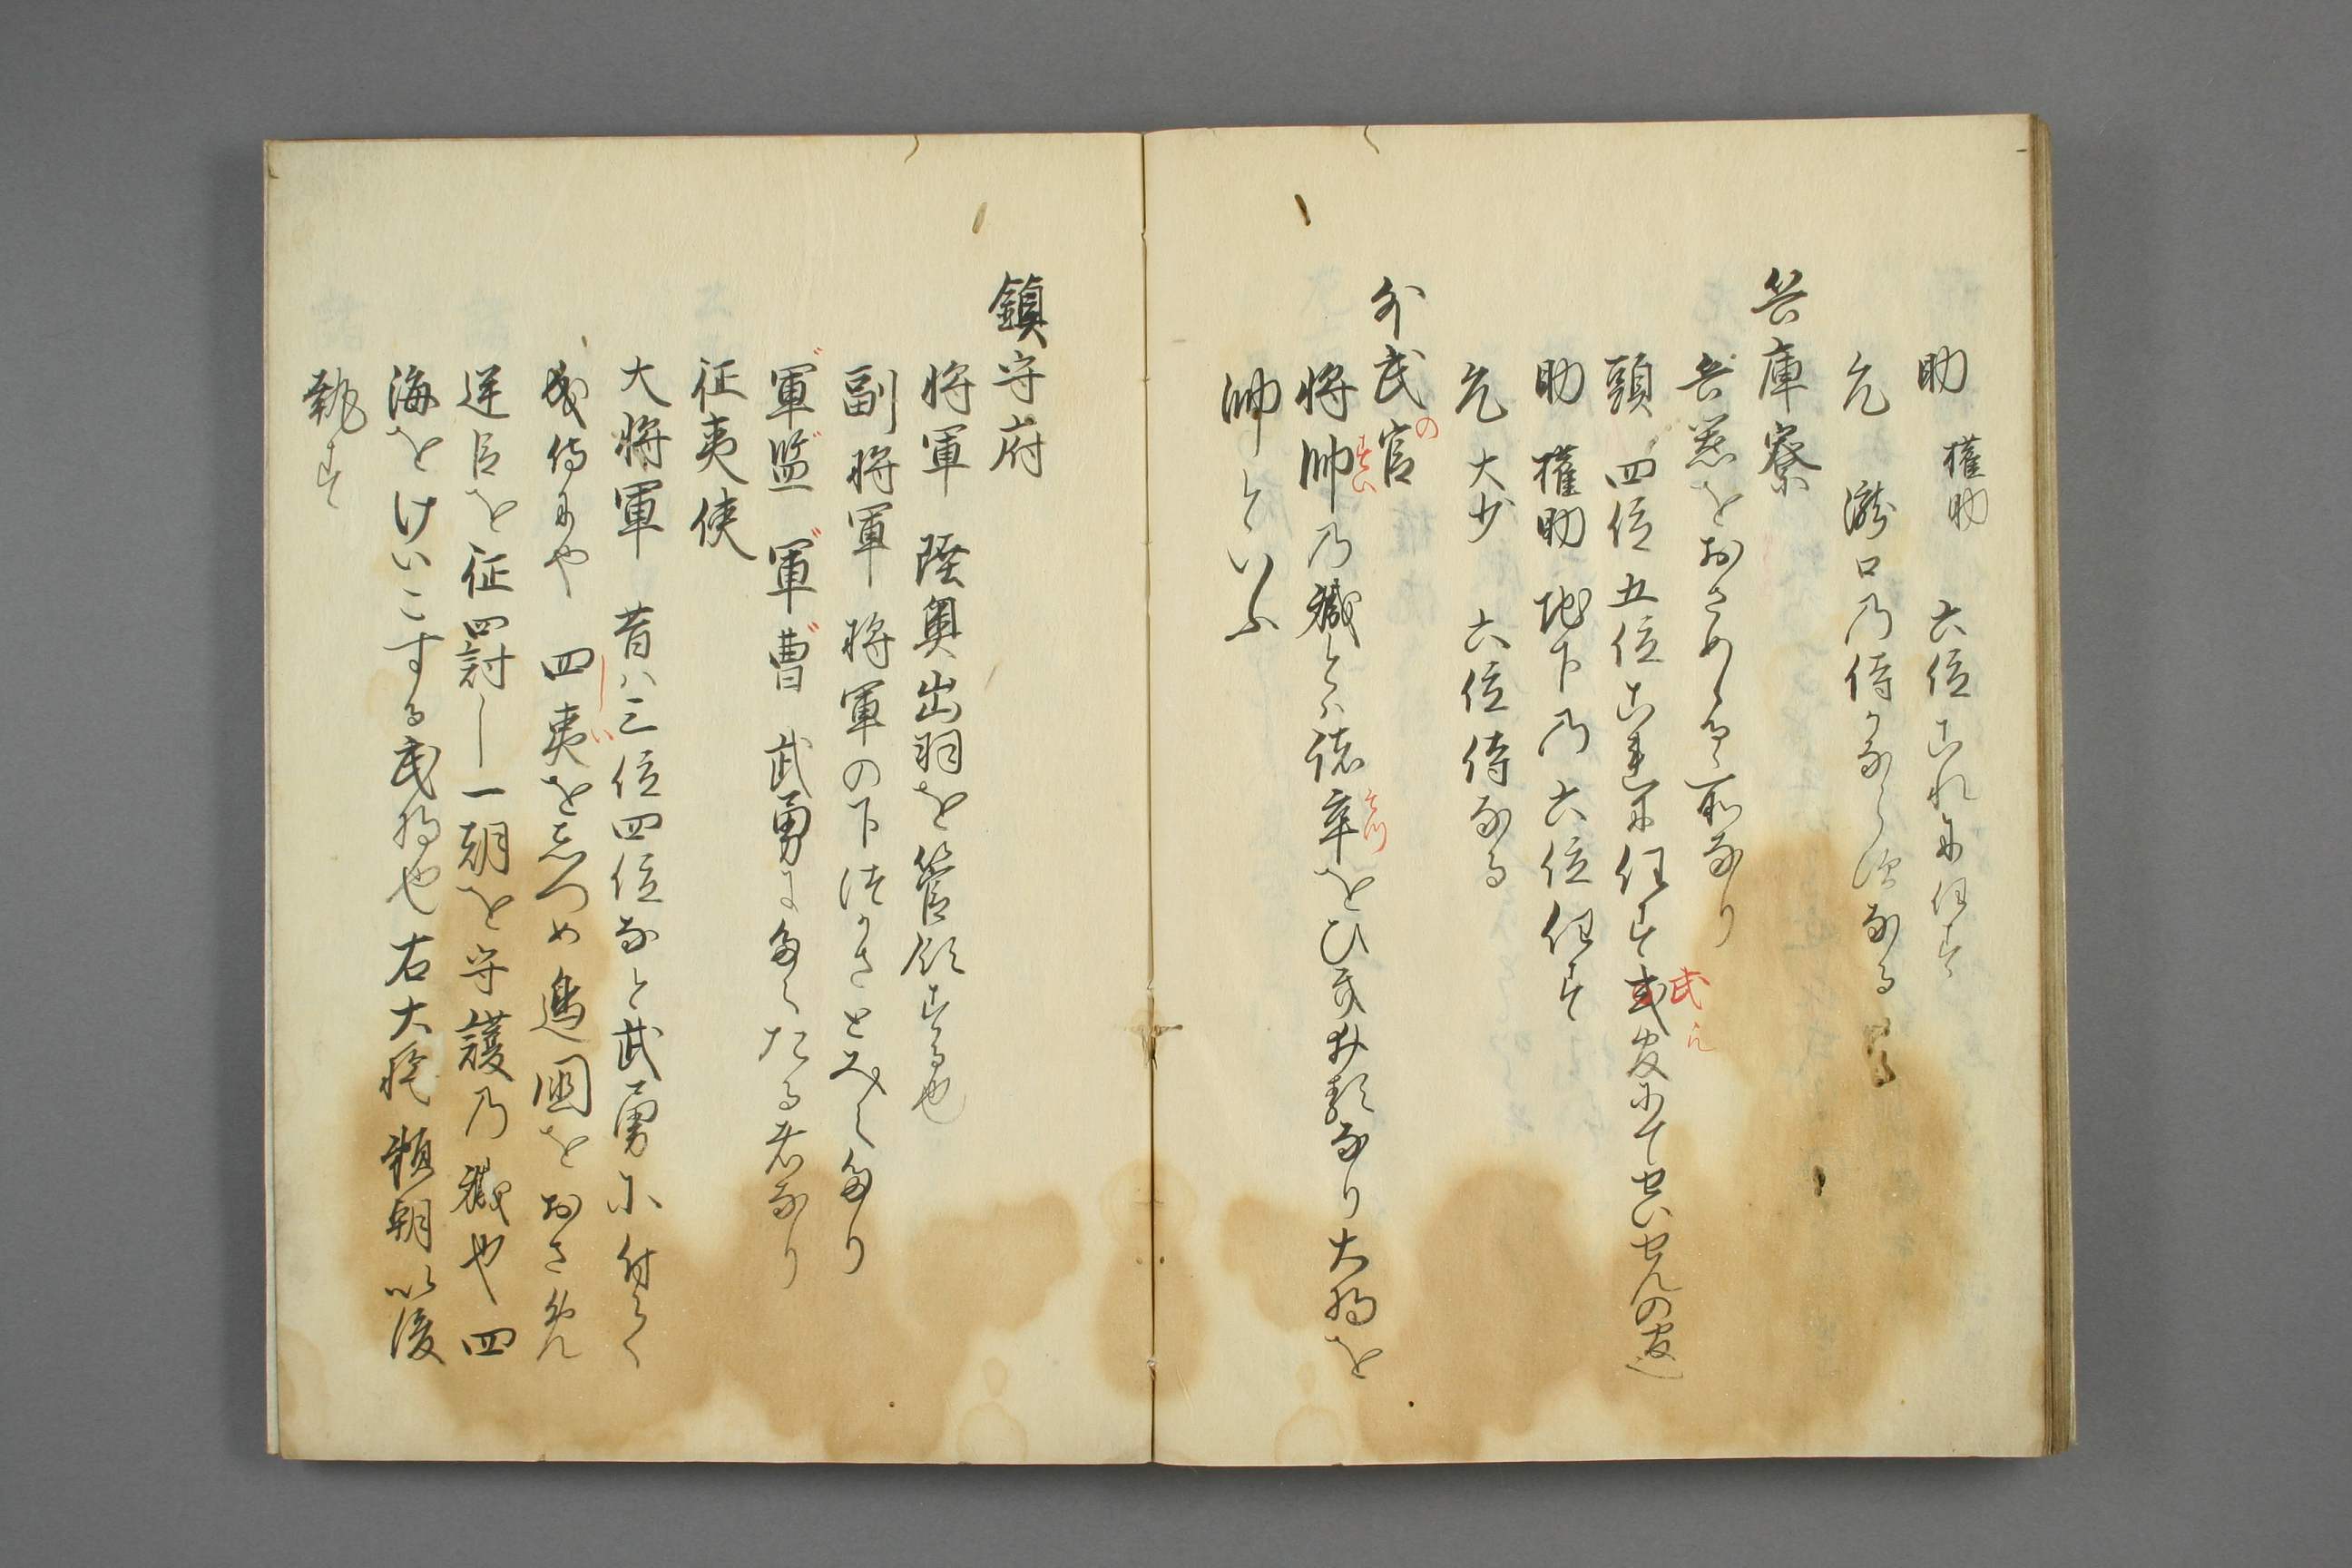 助 権助 六位これに任す
允 瀧口乃侍かならすなる
兵庫寮
兵器をおさめらるゝ所なり
頭 四位五位これに任す武官にてせいせんの官也
助 権助 地下乃六位任す
允 大少 六位侍なる
外武官の
将帥乃職とハ諸卒をひきゐ類なり大将を
帥といふ
鎮守府
将軍 陸奥出羽を管領する也
副将軍 将軍の下につかさとるみえたり
軍監 軍曹 武勇にたへたる者なり
征夷使
大将軍 昔ハ三位四位なと武勇に付て
成侍にや 四夷をしつめ邊国をおさめ
逆臣を征四討し一朝を守護乃職也四
海をけいこする武将也右大将頼朝以後
執す